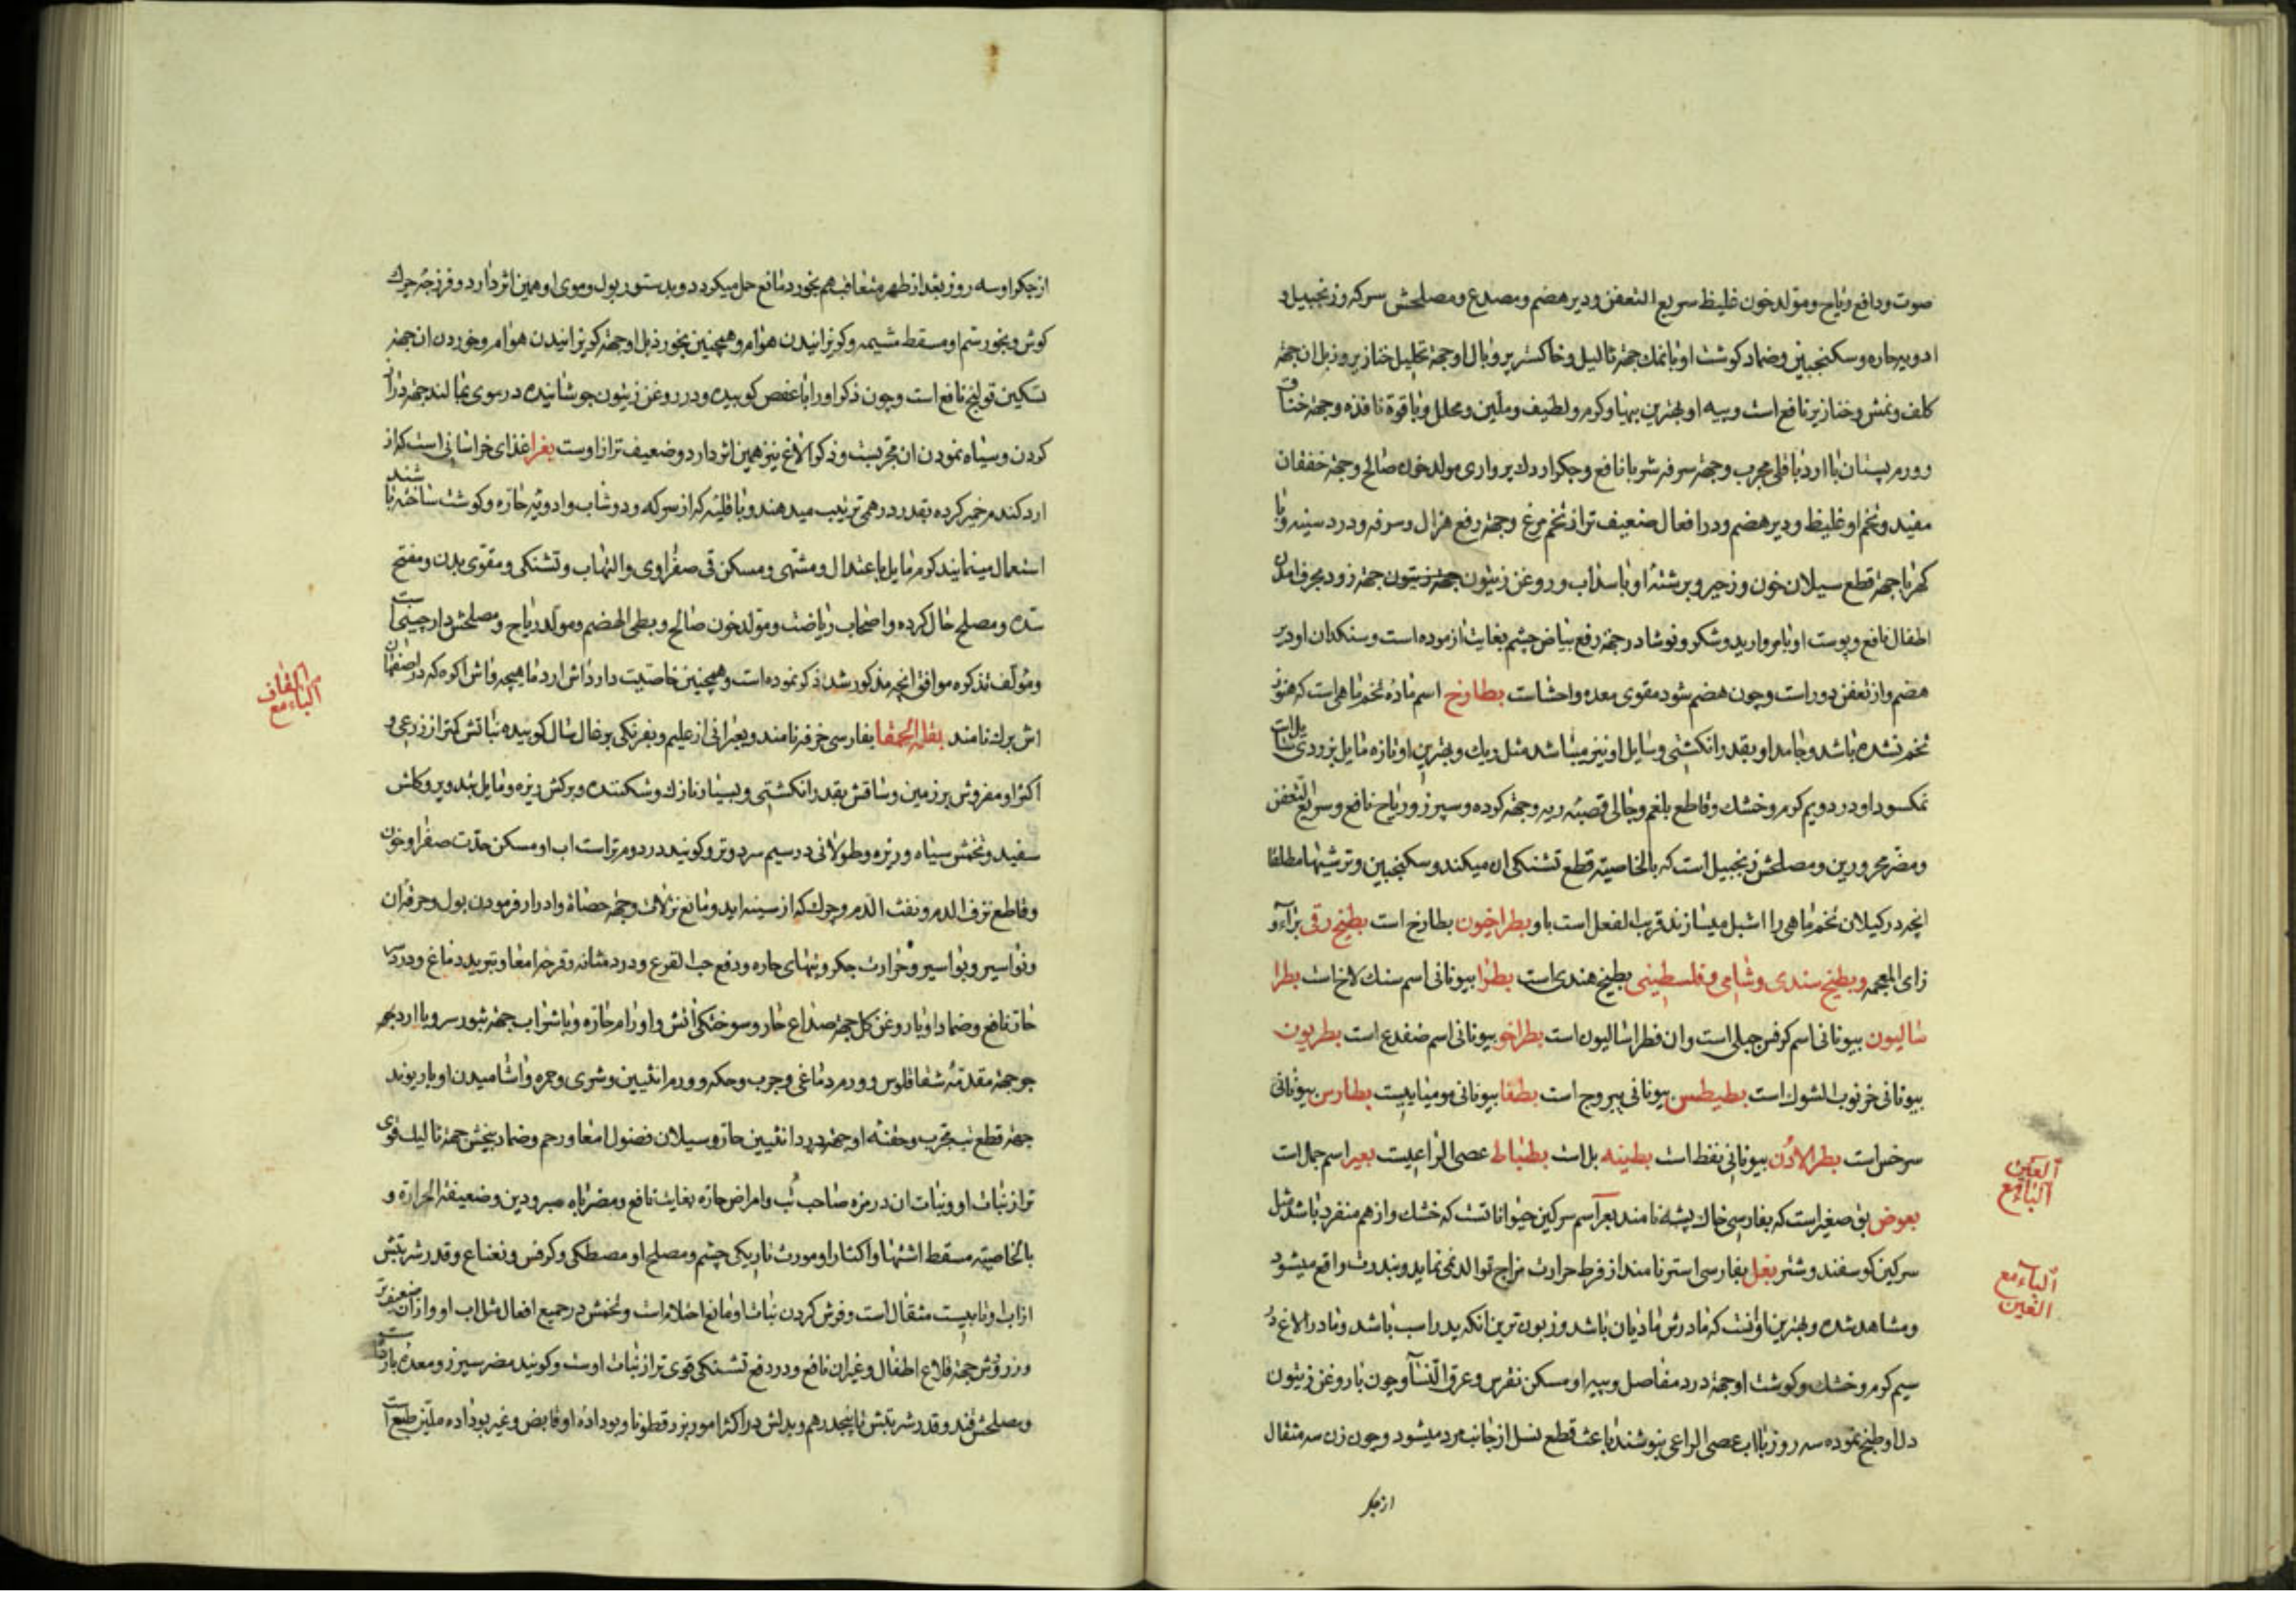 صوت و دافع ریاح و مولد خون غلیظ سریع التعفن و دیر هضم و مصدع و مصلحش سرکه و زنجبیل و
ادویه حاره و سکنجبین و ضماد کوشت او با نمك جهة ثالیل و خاکستر پر و بال او جهة تحلیل خنازیر و زبل ان جهة
کلف و نمش و خنازیر نافع است و پیه او بهترین پیها و کرم و لطیف و ملین و محلل و با قوة نافذه و جهة خناق
و ورم پستان با ارد باقلی مجرب و جهة سرفه شربا نافع و جکر اردك پرواری مولد خون صالح و جهة خفقان
مفید و تخم او غلیظ و دیر هضم و در افعال ضعیف تر از تخم مرغ و جهة رفع هزال و سرفه و درد سینه و با
کهربا جهة قطع سیلان خون و زحیر و برشتهٔ او با سداب و روغن زیتون جهة زیتون جهة زود بحرف امدن
اطفال نافع و پوست او با مروارید و شکر و نوشادر جهة رفع بیاض چشم بغایت ازموده است و سنکدان او دیر
هضم و از تعفن دور است و چون هضم شود مقوی معده و احشاست بطارخ اسم ماده تخم ماهی است که هنوز
تخم نشده باشد و جامد او بقدر انکشتی و سایل او نیز میباشد مثل ریك و بهترین او تازه مایل بزردی
نمکسود او در دویم کرم و خشك و قاطع بلغم و جالی قصبهٔ ریه و جهة کرده و سپرز و ریاح نافع و سریع التعفن
و مضر محرورین و مصلحش زنجبیل است که بالخاصیه قطع تشنکی ان میکند و سکنجبین و ترشیها مطلقا
انچه در کیلان تخم ماهی را اشبل میسازند قریب الفعل است باو بطراخیون بطارخ است بطیخ رقی براء و
زای المعجمه و بطیخ سندی و شامی و فلسطینی بطیخ هندی است بطرا بیونانی اسم سنك لاخ است بطرا
سالیون بیونانی اسم کرفس جبلی است و ان فطراسالیون است بطراخو بیونانی اسم ضفدع است بطریون
بیونانی خرنوب الشوك است بطیطس بیونانی یبروج است بطفا بیونانی مومیاییست بطارس بیونانی
سرخس است بطر الاذن بیونانی نفط است بطینه بل است بطباط عصی الراعیست بعیر اسم جمل است
بعوض بق صغیر است که بفارسی خاك پشه نامند بعر اسم سرکین حیواناتست که خشك و از هم منفرد باشد مثل
سرکین کوسفند و شتر بغل بفارسی استر نامند از فرط حرارت مزاج توالد نمی نماید و بندرت واقع میشود
و مشاهد شده و بهترین او انست که مادرش مادیان باشد و زبون ترین انکه پدر اسب باشد و مادر الاغ در
سیم کرم و خشك و کوشت او جهة درد مفاصل و پیه او مسکن نقرس و عرق النسآ و چون با روغن زیتون
دل او طبخ نموده سه روز با اب عصی الراعی بنوشند باعث قطع نسل از جانب مرد میشود و چون زن سه مثقال
از جکر
العین
الباء مع
الباء مع
الغین
از جکر او سه روز بعد از طهر متعاقب هم بخورد مانع حمل میکردد و بدستور بول و موی او همین اثر دارد و فرزجه چرك
کوش و بخور سم او مسقط مشیمه و کریزانیدن هوام و همچنین بخور ذبل او جهة کریزانیدن هوام و خوردن ان جهة
تسکین قولنج نافع است و چون ذکر او را با عفص کوبیده و در روغن زیتون جوشانیده در موی بمالند جهة دراز
کردن و سیاه نمودن ان مجربست و ذکر الاغ نیز همین اثر دارد و ضعیف تر از اوست بغرا غذای خراسانی است که از
ارد کندم خمیر کرده بقدر درهمی ترتیب میدهند و با قلیه که از سرکه و دوشاب و ادویه حاره و کوشت ساخته باشند
استعمال مینمایند کرم مایل باعتدال و مشتهی و مسکن قی صفراوی و التهاب و تشنکی و مقوی بدن و مفتح
سده و مصلح حال کرده و اصحاب ریاضت و مولد خون صالح و بطی الهضم و مولد ریاح و مصلحش دارچینی است
و مؤلف تذکره موافق انچه مذکور شد ذکر نموده است و همچنین خاصیت دارد اش ارد ماهیچه و اش اکره که در اصفهان
اش برك نامند بقلة الحمقا بفارسی خرفه نامند و بعبرانی ارغلیم و بفرنکی برغال سال کوبیده نباتش کمتر از زرعی و
اکثر او مفروش بر زمین و ساقش بقدر انکشتی و بسیار نازك و شکننده و برکش ریزه و مایل بتدویر و کلش
سفید و تخمش سیاه و ریزه و طولانی در سیم سرد و تر و کویند در دوم تر است اب او مسکن حدت صفرا و خون
و قاطع نزف الدم و نفث الدم و چرك که از سینه اید و مانع نزلات و جهة حصاة و ادرار فرمودن بول و حرقة ان
و نواسیر و بواسیر و حرارت جکر و تبهای حاره و دفع حب القرع و درد مثانه و قرحه امعا و تبرید دماغ و درد سر
حاد نافع و ضماد او با روغن کل جهة صداع حار و سوختکی اتش و اورام حاره و با شراب جهة بثور سر و با ارد جو
جو جهة مقدمهٔ شفاقلوس و ورم دماغی و جرب و حکه و ورم انثیین و شری و جمره و اشامیدن او با ریوند
جهة قطع تب مجرب و حقنهٔ او جهة درد انثیین حار و سیلان فضول امعا و رحم و ضماد بیخش جهة ثالیل قوی
تر از نبات او و نبات ان در مزه صاحب تب و امراض حاره بغایت نافع و مضر باه مبرودین و ضعیفة الحرارة و
بالخاصیه مسقط اشتها و اکثار او مورث تاریکی چشم و مصلح او مصطکی و کرفس و نعناع و قدر شربتش
از اب او تا بیست مثقال است و فرش کردن نبات او مانع احتلام است و تخمش در جمیع افعال مثل اب او و از ان ضعیف تر
و زرورش جهة قلاع اطفال و غیر ان نافع و در دفع تشنکی قوی تر از نبات اوست و کویند مضر سپرز و معده بارد است
و مصلحش قند و قدر شربتش تا پنجدرهم و بدلش در اکثر امور بزرقطونا و بو داده او قابض و غیر بو داده ملین طبع است
القاف
الباء مع